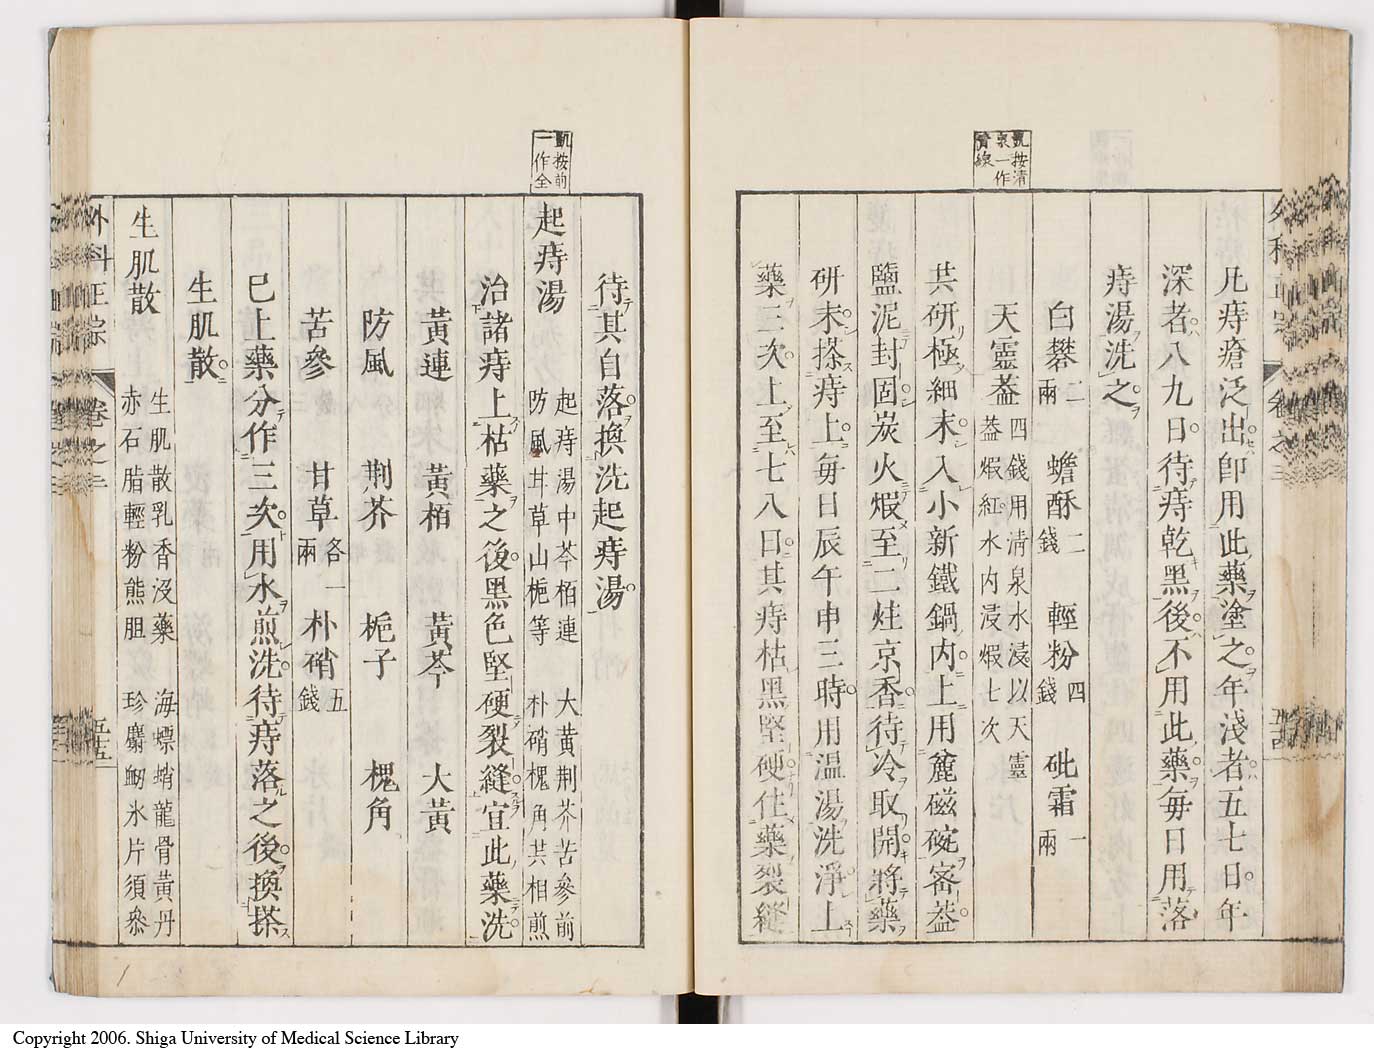 凱按清
泉一作
凡痔瘡泛出卽用此藥塗之年淺者五七日年
深者八九日待痔乾黑後不用此藥每日用落
痔湯洗之
白礬二兩 蟾酥二錢 輕粉四錢 砒霜一兩
天靈蓋四錢用淸泉水浸以天靈
蓋煆紅水內浸煆七次
共研極細末入小新鐵鍋內上用麄磁碗密蓋
鹽泥封固炭火煆至二炷京香待冷取開將藥
研末搽痔上每日辰午申三時用溫湯洗淨上
藥三次上至七八日其痔枯黑堅硬住藥裂縫
凱按前
一作全
待其自落換洗起痔湯
起痔湯 起痔湯中芩栢連 大黃荆芥苦參前
防風甘草山梔等 朴硝槐角共相煎
治諸痔上枯藥之後黑色堅硬裂縫宜此藥洗
黃連 黃栢 黃芩 大黃
防風 荆芥 梔子 槐角
苦參 甘草各一兩 朴硝五錢
已上藥分作三次用水煎洗待痔落之後換搽
生肌散
生肌散 生肌散乳香沒藥 海螵蛸龍骨黃丹
赤石脂輕粉熊胆 珍麝 氷片須參
外科正宗 卷之三 五十五